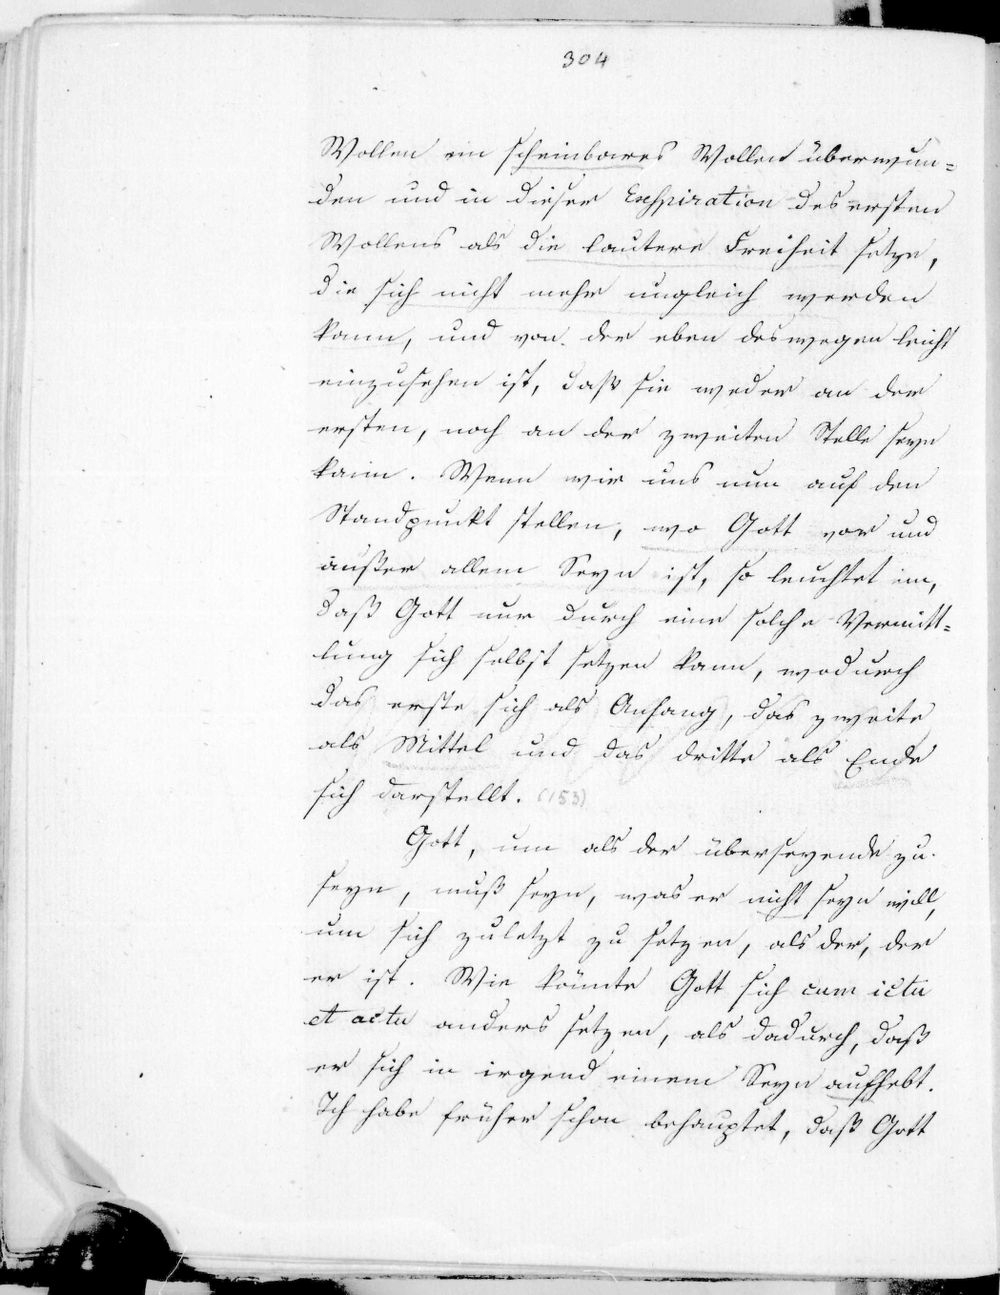 304
Wollen ein scheinbares Wollen überwun=
den und in dieser Exspiration des ersten
Wollens als die lautere Freiheit setze,
die sich nicht mehr ungleich werden
kann, und von der eben deswegen leicht
einzusehen ist, daß sie weder an der
ersten, noch an der zweiten Stelle seyn
kann. Wenn wir uns nun auf den
Standpunkt stellen, wo Gott vor und
außer allem Seyn ist, so leuchtet ein,
daß Gott nur durch eine solche Vermitt=
lung sich selbst setzen kann, wodurch
das erste sich als Anfang, das zweite
als Mittel und das dritte als Ende
sich darstellt. (153)
Gott, um als der überseyende zu
seyn, muß seyn, was er nicht seyn will,
um sich zuletzt zu setzen, als der, der
er ist. Wie könnte Gott sich cum ictu
et actu anders setzen, als dadurch, daß
er sich in irgend einem Seyn aufhebt.
Ich habe früher schon behauptet, daß Gott